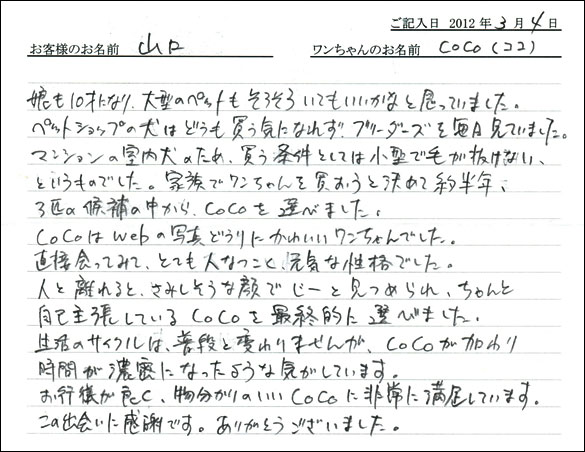 ご記入日 2012 年 3 月 4 日
お客様のお名前 山口 ワンちゃんのお名前 COCO (ココ)
娘も10才になり、大型のペットもそろそろいてもいいかなと思っていました。
ペットショップの犬はどうも買う気になれず、ブリーダーズを毎日見ていました。
マンションの室内犬のため、買う条件としては小型で毛が抜けない、
というものでした。家族でワンちゃんを買おうと決めて約半年、
3匹の候補の中から、COCOを選べました。
COCOはwebの写真どうりにかわいいワンちゃんでした。
直接会ってみて、とても人なつこく、元気な性格でした。
人と離れると、さみしそうな顔でじーと見つめられ、ちゃんと
自己主張しているCOCOを最終的に選べました。
生活のサイクルは、普段と変わりませんが、COCOが加わり
時間が濃密になったような気がしています。
お行儀が良く、物分かりのいいCOCOに非常に満足しています。
この出会いに感謝です。ありがとうございました。